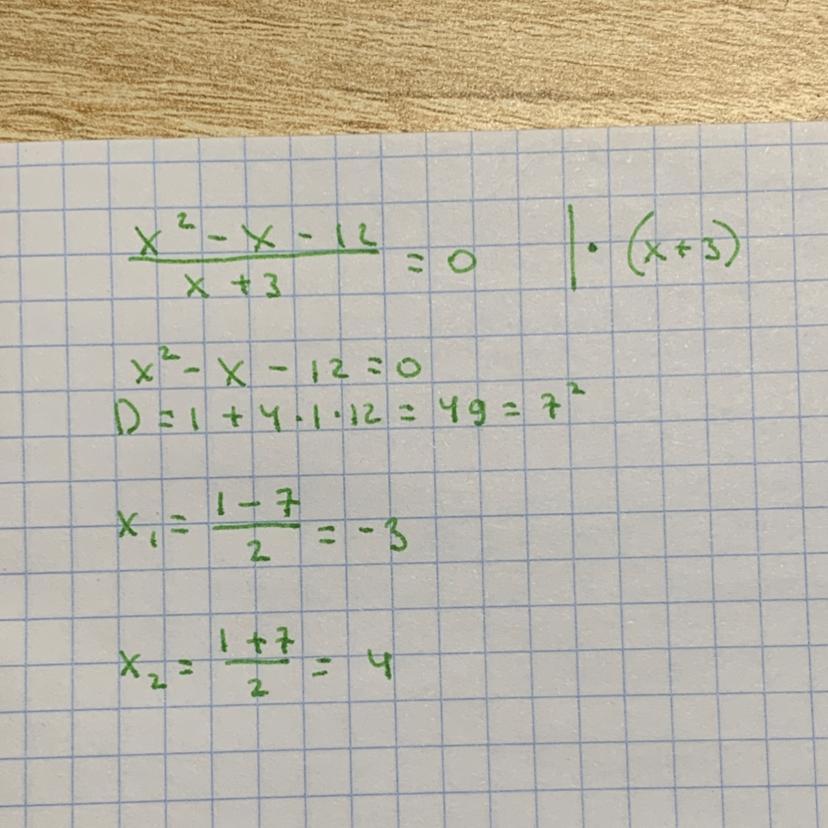 (x² - x - 12)/(x + 3) = 0 | · (x + 3)
x² - x - 12 = 0
D = 1 + 4 · 1 · 12 = 49 = 7²
x₁ = (1 - 7)/2 = -3
x₂ = (1 + 7)/2 = 4